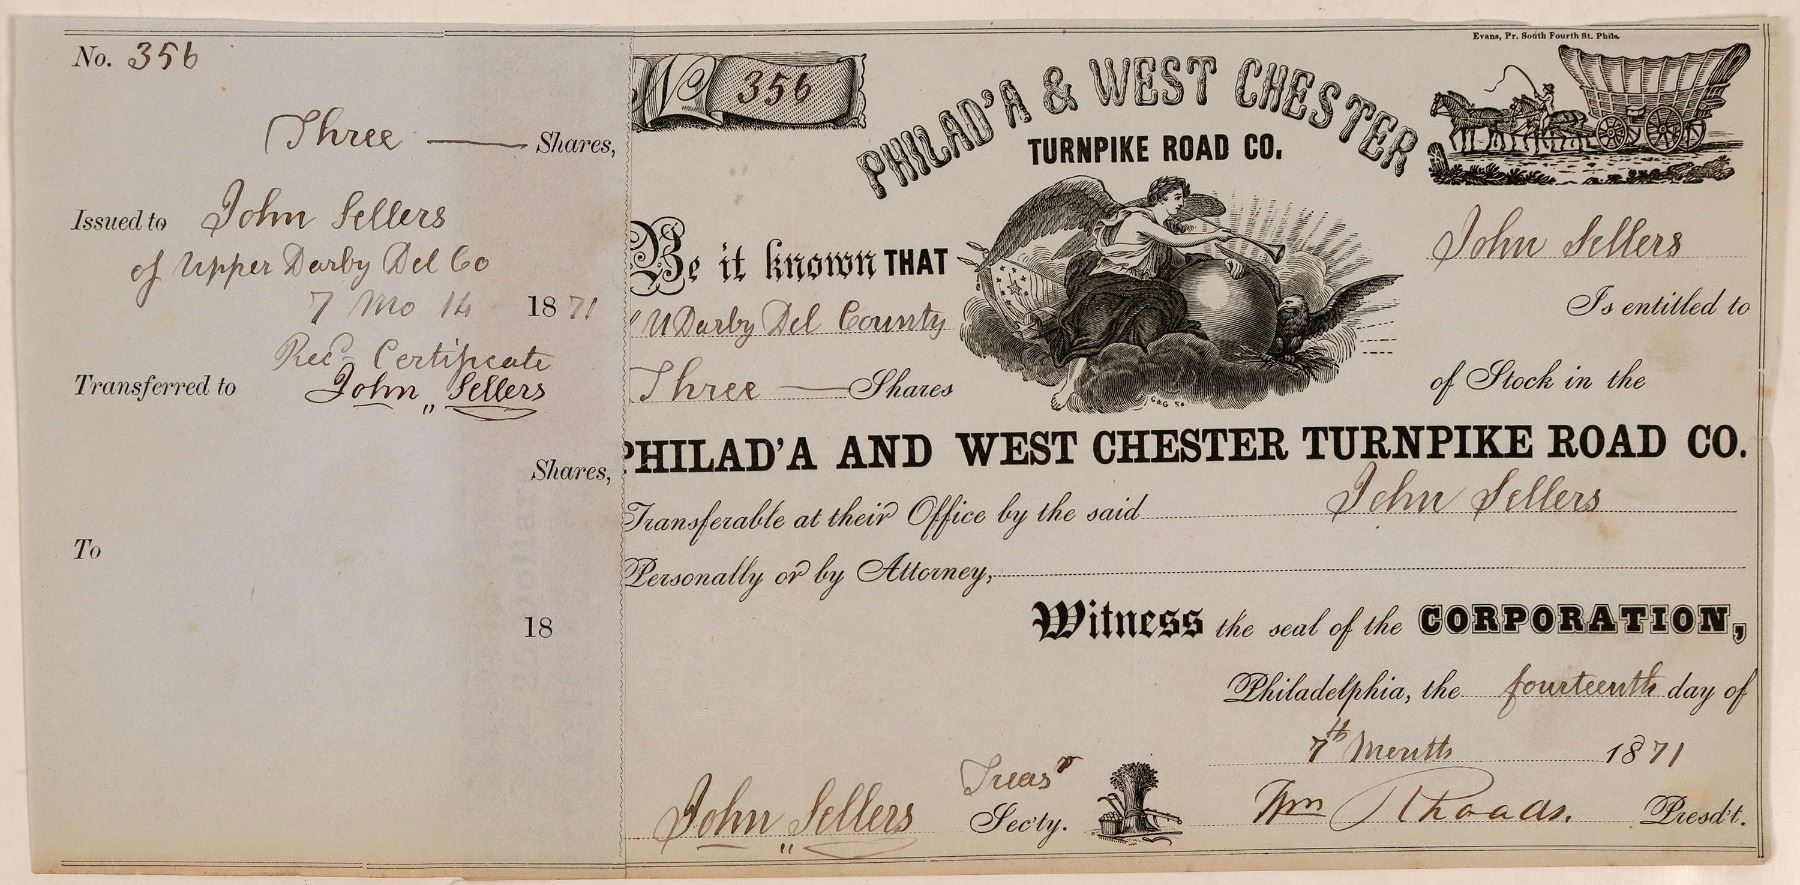 No. 356
Three Shares,
Issued to John Sellers
of Upper Darby Del Co
7 Mo 14 1871
Rec Certificate
Transferred to John „ Sellers
Shares,
To
18
Evans, Pr. South Fourth St. Phila.
No 356
PHILAD'A & WEST CHESTER
TURNPIKE ROAD CO.
Be it known THAT John Sellers
U Darby Del County Is entitled to
Three Shares of Stock in the
C&G Sc
PHILAD'A AND WEST CHESTER TURNPIKE ROAD CO.
Transferable at their Office by the said John Sellers
Personally or by Attorney,
Witness the seal of the CORPORATION,
Philadelphia, the fourteenth day of
7th Month 1871
John „ Sellers Treasr Sec'ty. Wm Rhoads. Presd't.